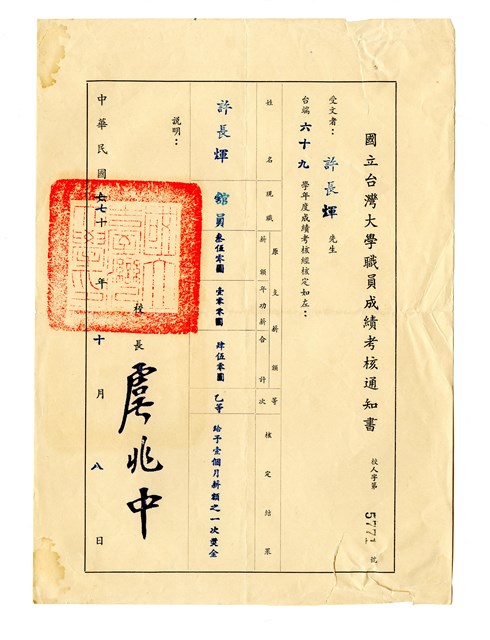 國立台灣大學職員成績考核通知書 校人字第 577 號
受文者：許長輝 先生
台端六十九學年度成績考核經核定如左：
姓名 現職 原支薪額 薪額 年功薪 合計 等次 核定結果
許長輝 館員 叁伍零圓 壹零零圓 肆伍零圓 乙等 給予壹個月薪額之一次獎金
說明：
校長 虞兆中
中華民國七十年十月八日